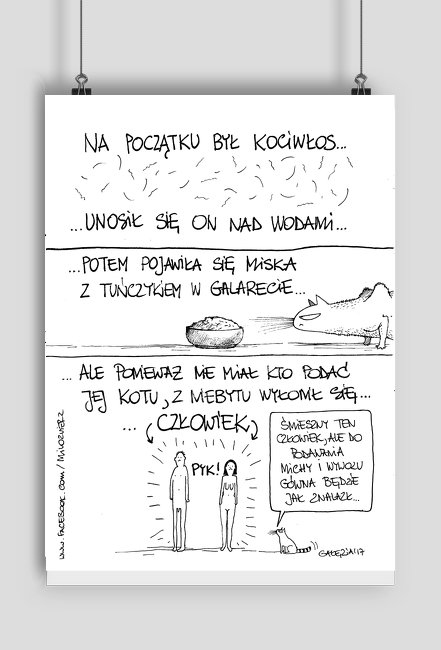 NA POCZĄTKU BYŁ KOCIWŁOS...
...UNOSIŁ SIĘ ON NAD WODAMI...
...POTEM POJAWIŁA SIĘ MISKA
Z TUŃCZYKIEM W GALARECIE...
... ALE PONIEWAŻ NIE MIAŁ KTO PODAĆ
JEJ KOTU, Z NIEBYTU WYŁONIŁ SIĘ...
... CZŁOWIEK
PYK!
ŚMIESZNY TEN
CZŁOWIEK, ALE DO
PODAWANIA
MICHY I WYWOZU
GÓWNA BĘDZIE
JAK ZNALAZŁ...
www.facebook.com/Milozwierz